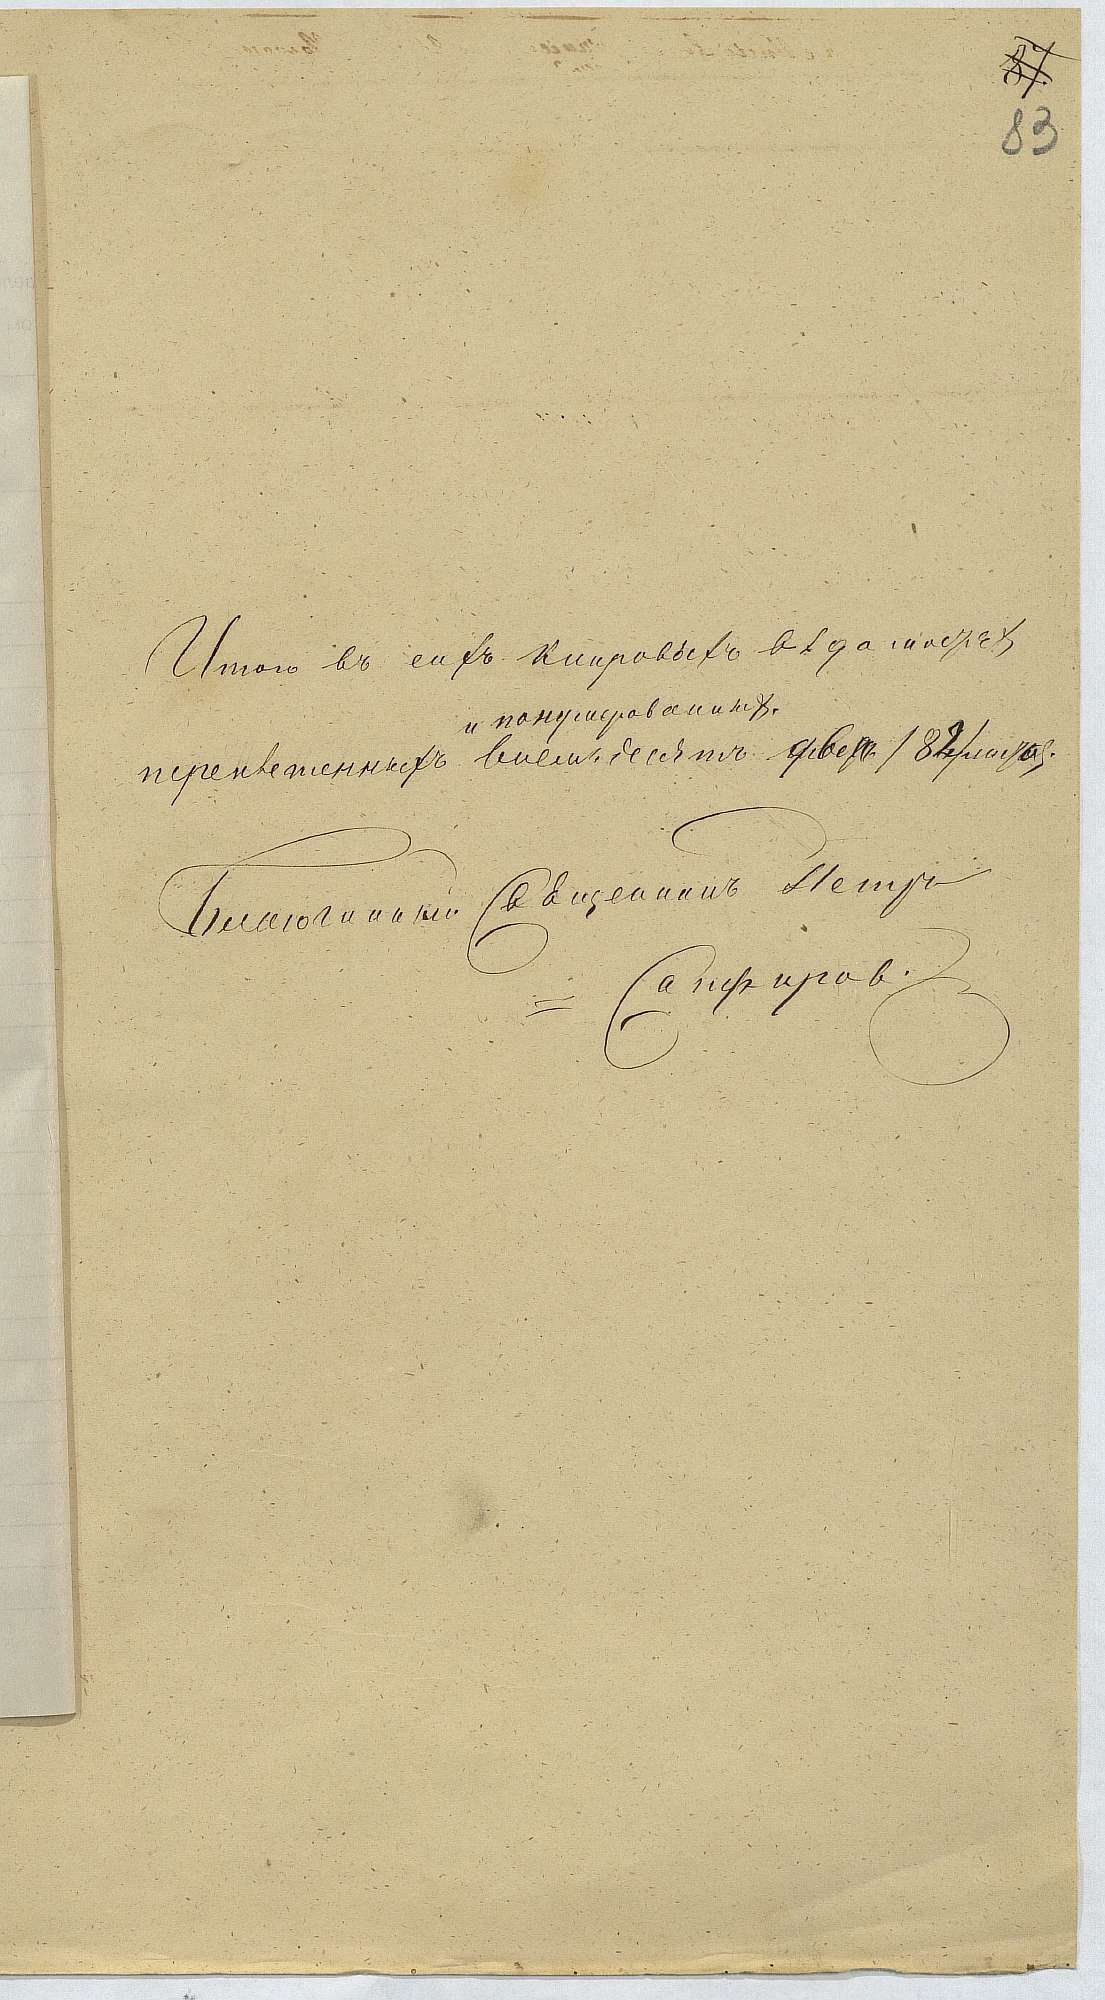 87
83
Итого въ сихъ клировыхъ вѣдомостях
и пронумерованных.
перемеченныхъ восемьдесятъ двѣ /82/ листов.
Благочинный Священникъ Петръ
= Сапфиров.